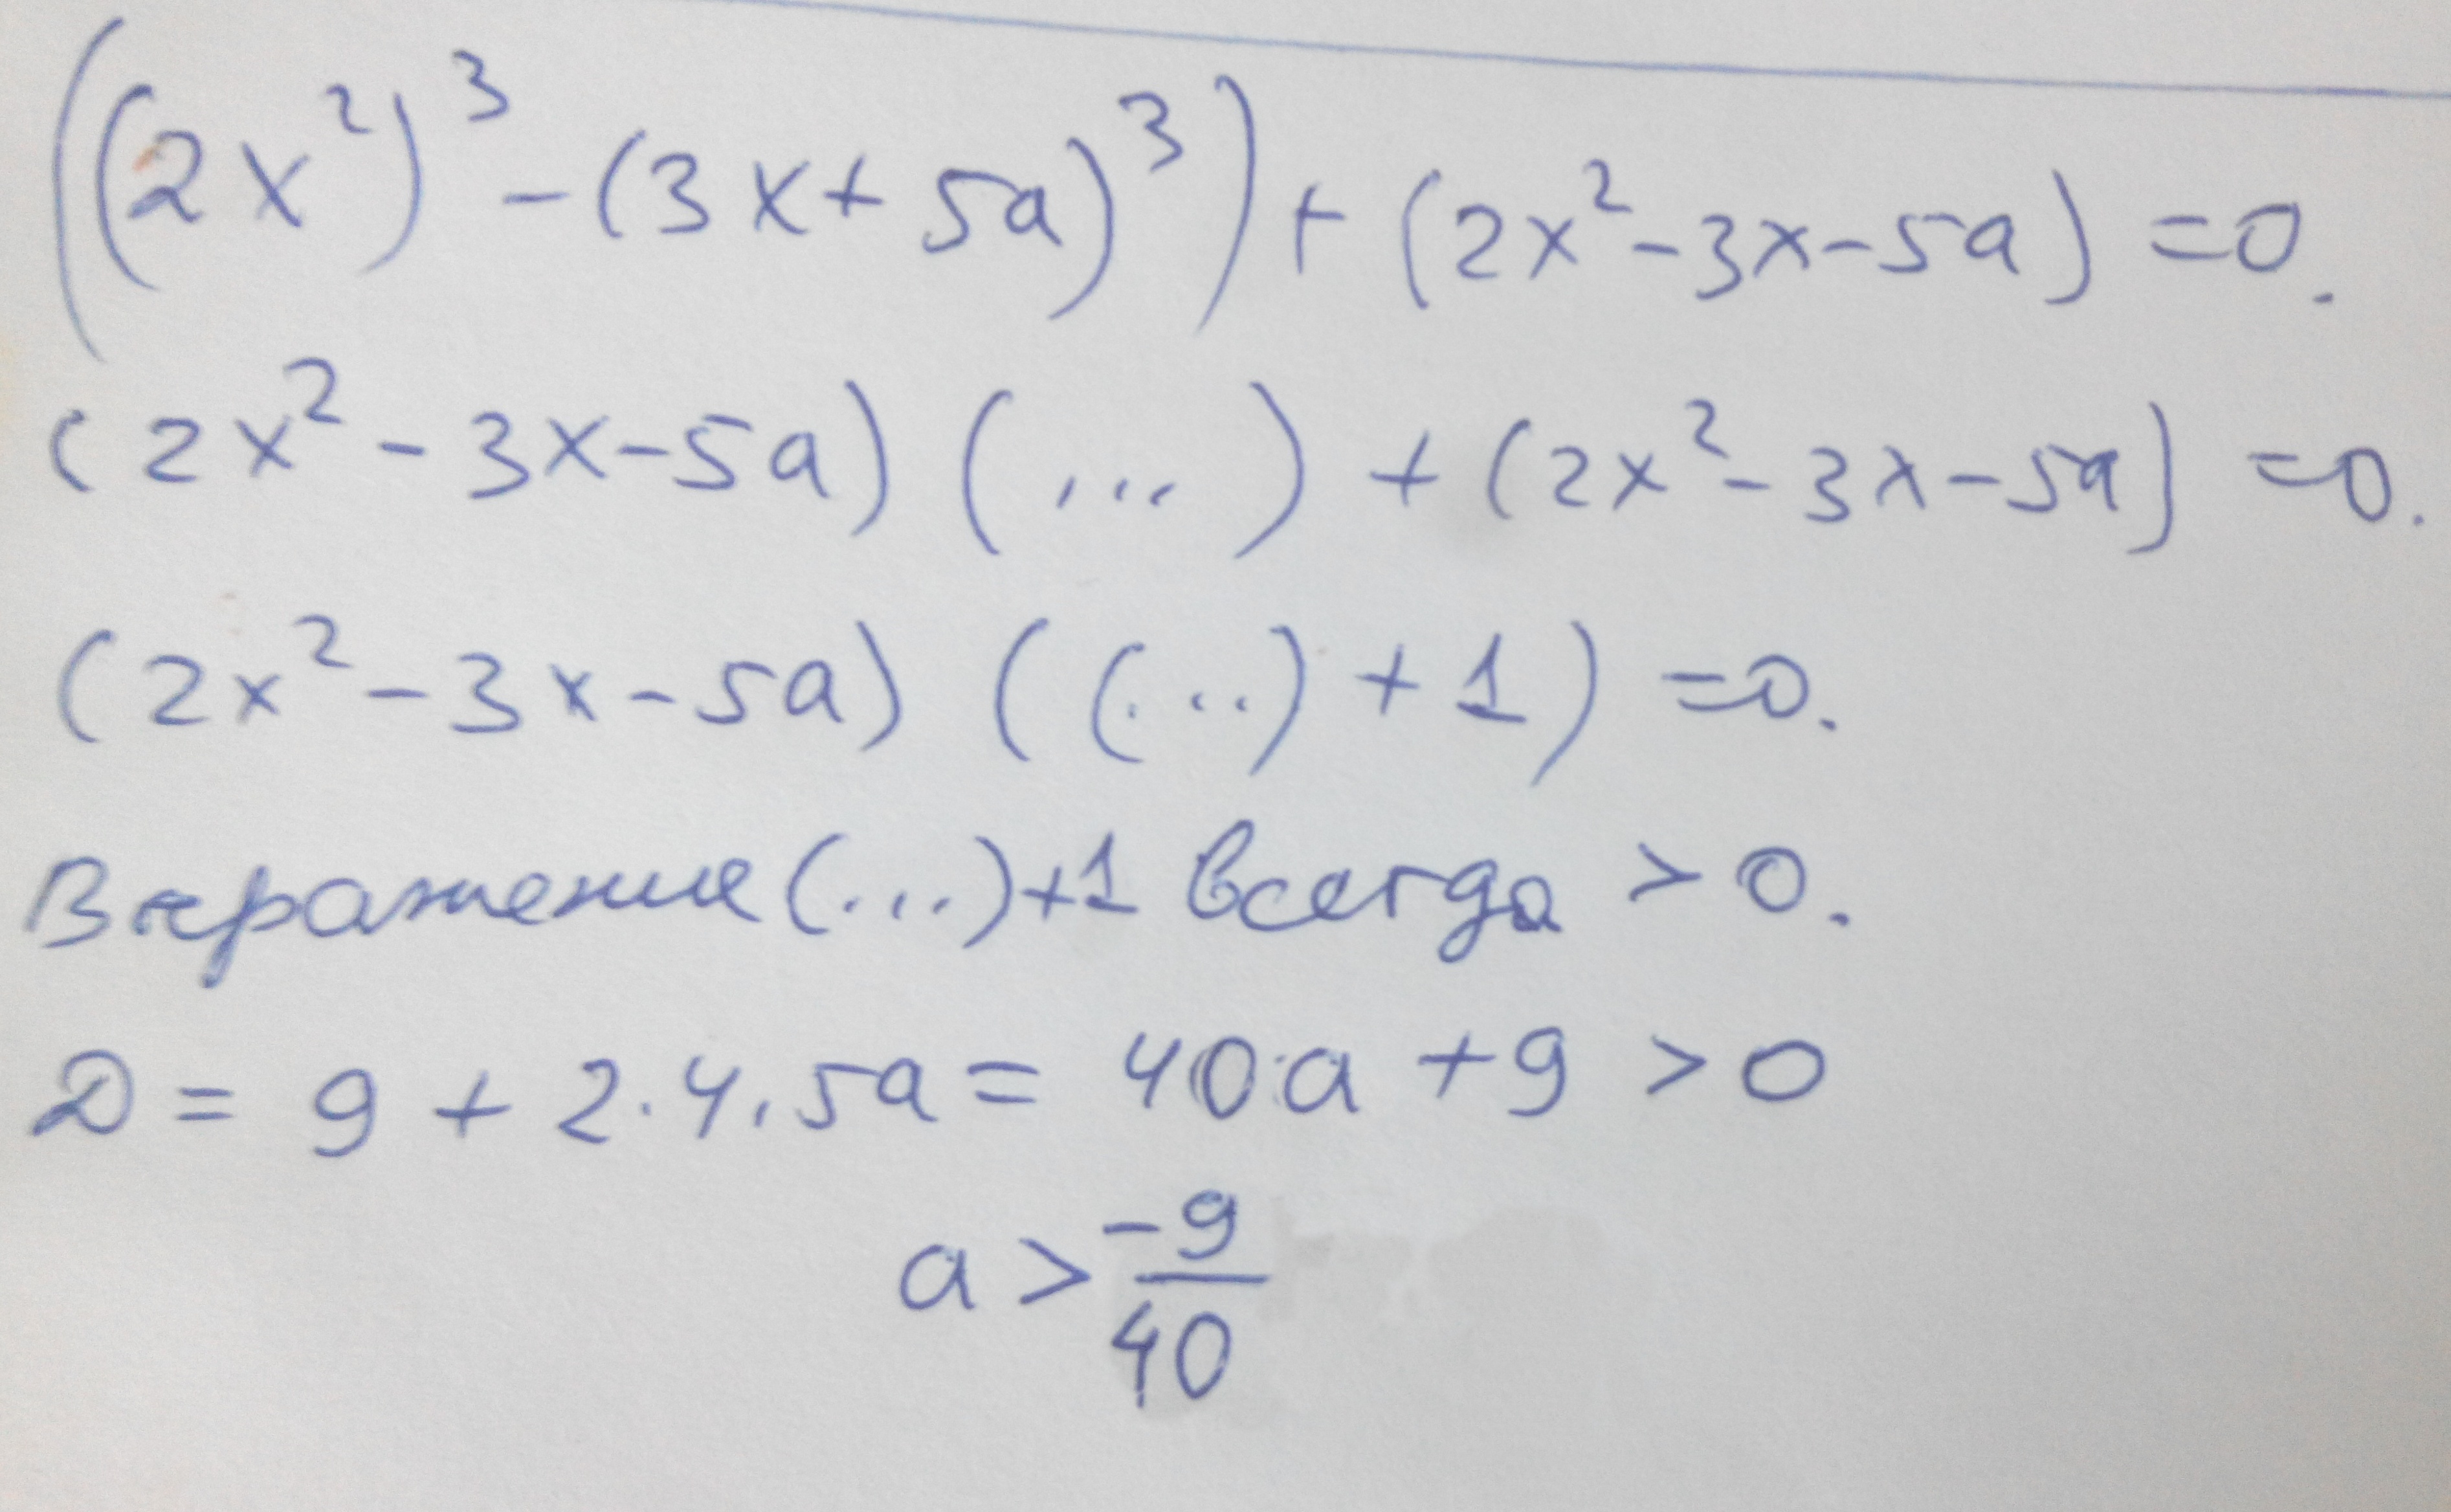 ((2x²)³ - (3x + 5a)³) + (2x² - 3x - 5a) = 0.
(2x² - 3x - 5a) (...) + (2x² - 3x - 5a) = 0.
(2x² - 3x - 5a) ((...) + 1) = 0.
Выражение (...) + 1 всегда > 0.
D = 9 + 2·4·5a = 40·a + 9 > 0
a > -9/40